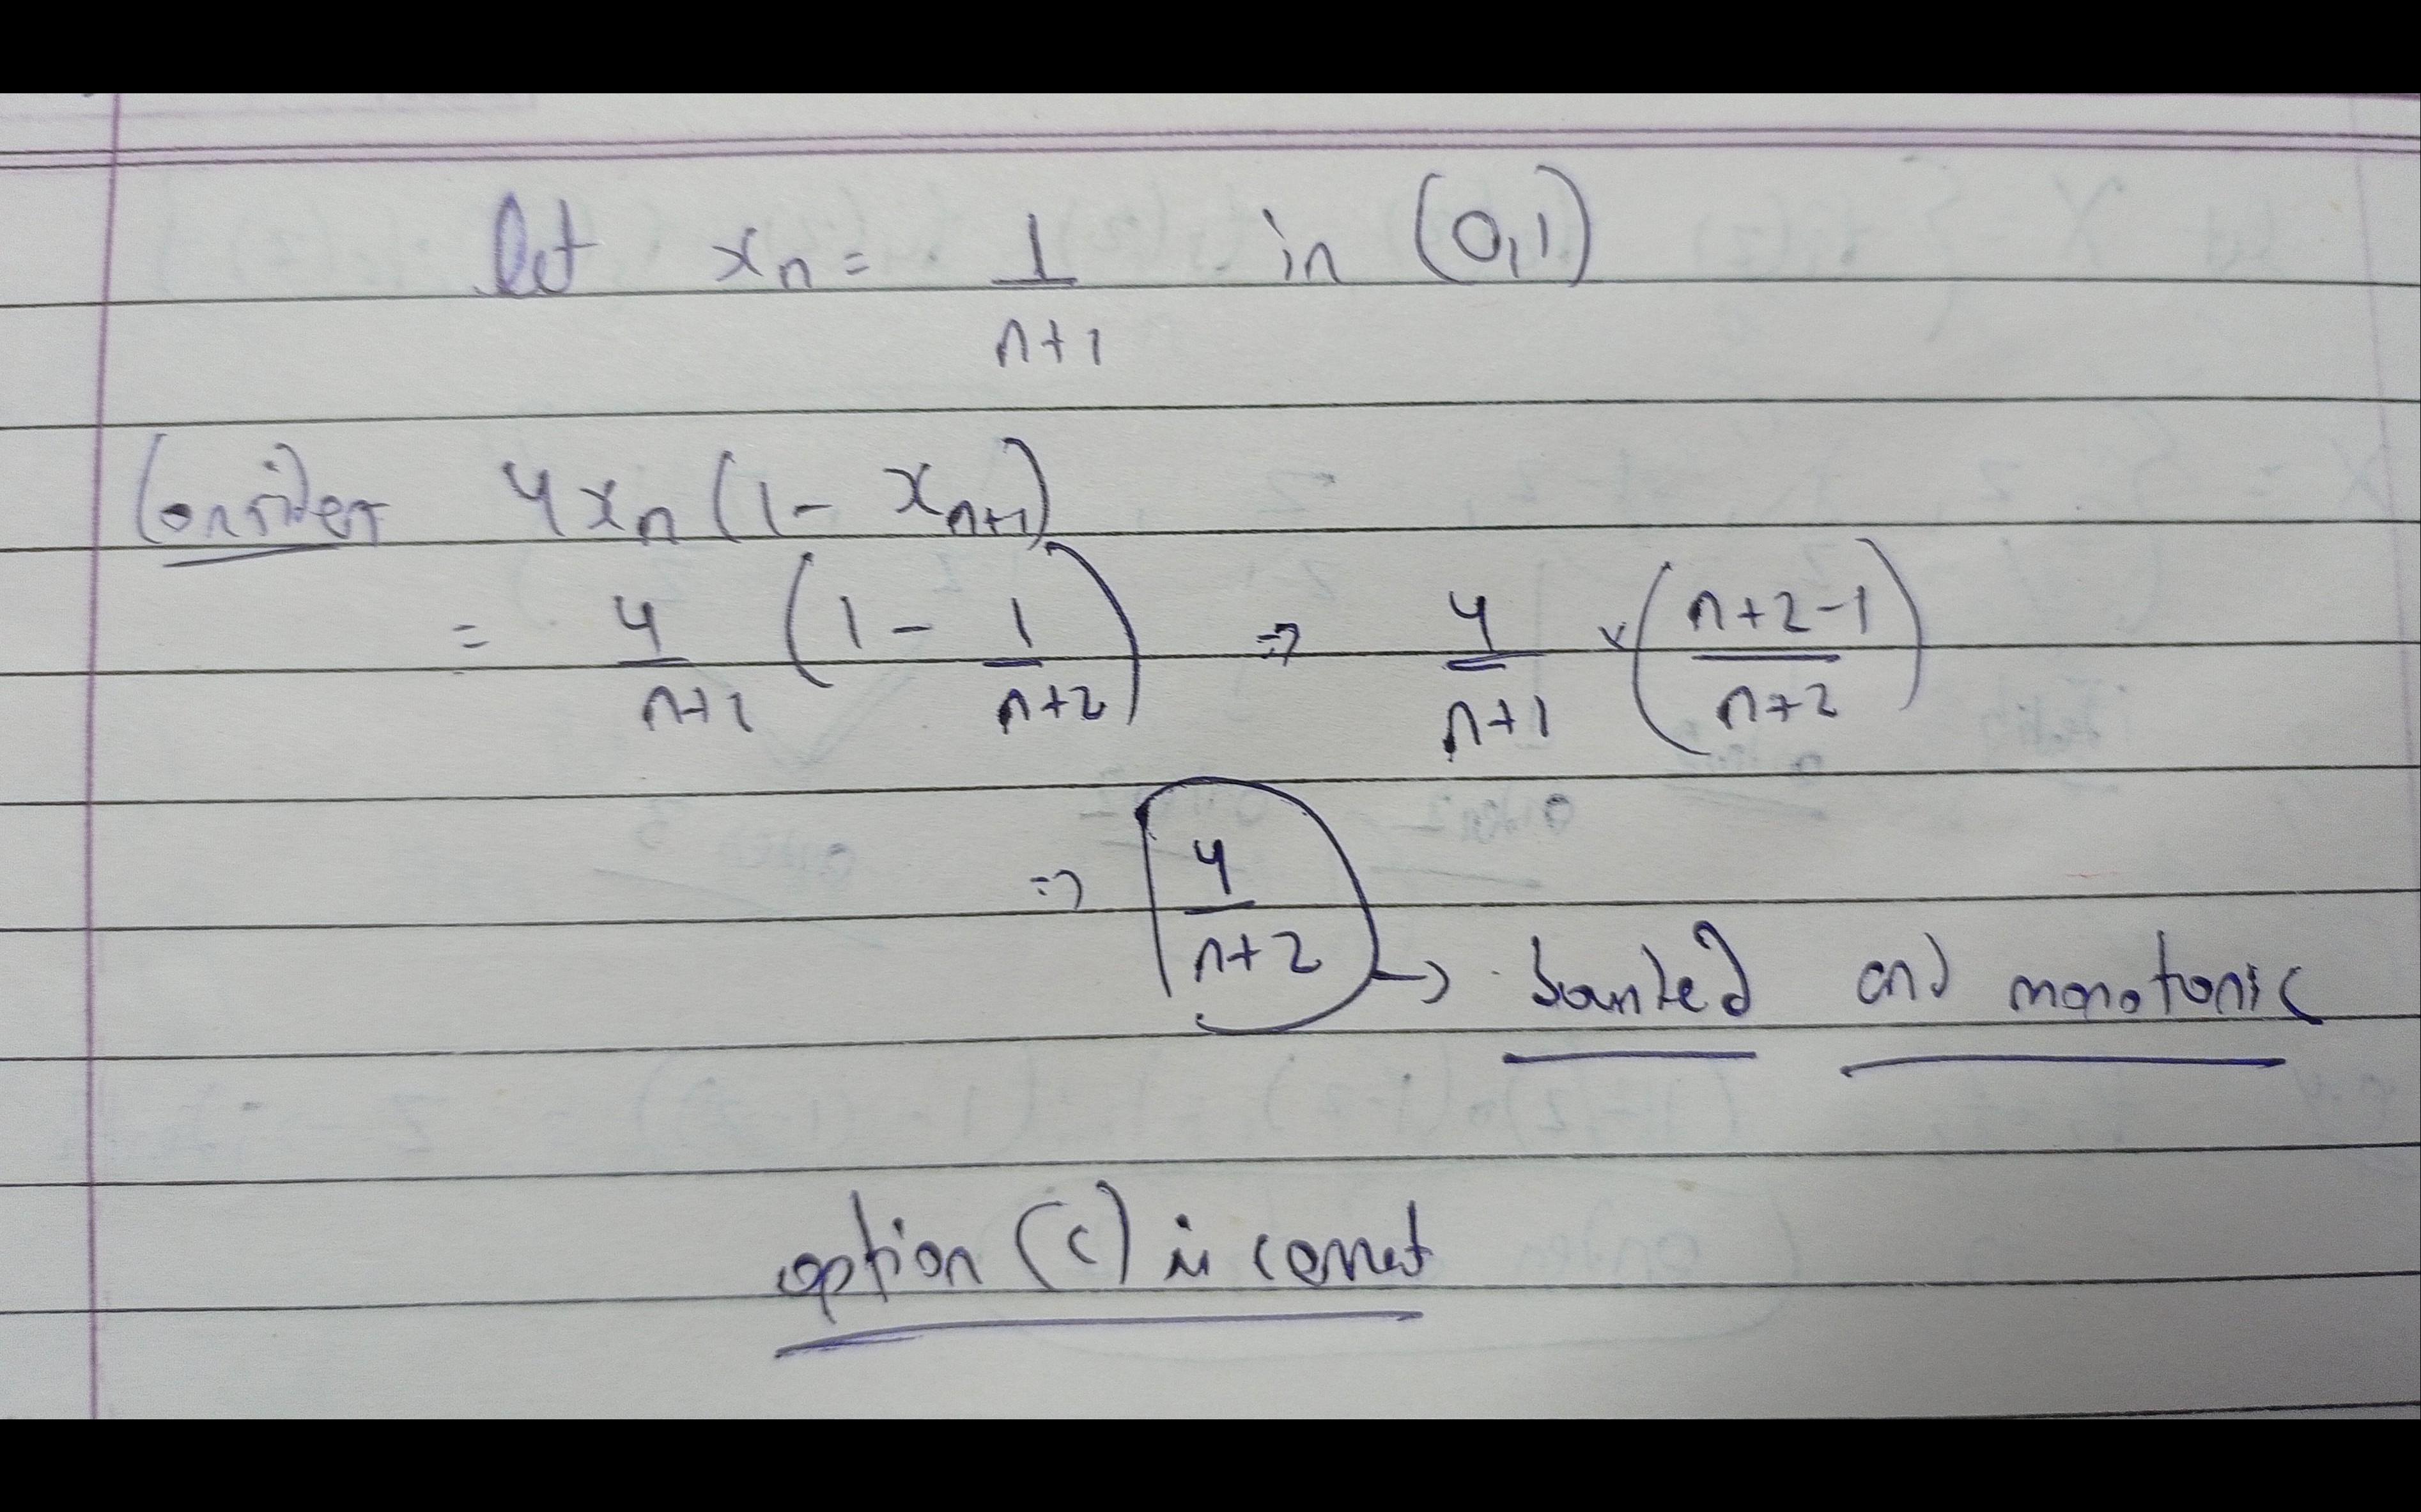 let xn = 1/(n+1) in (0,1)
Consider 4xn(1 - xn+1)
= 4/(n+1) (1 - 1/(n+2)) => 4/(n+1) × ((n+2-1)/(n+2))
=> 4/(n+2) → bounded and monotonic
option (c) is correct